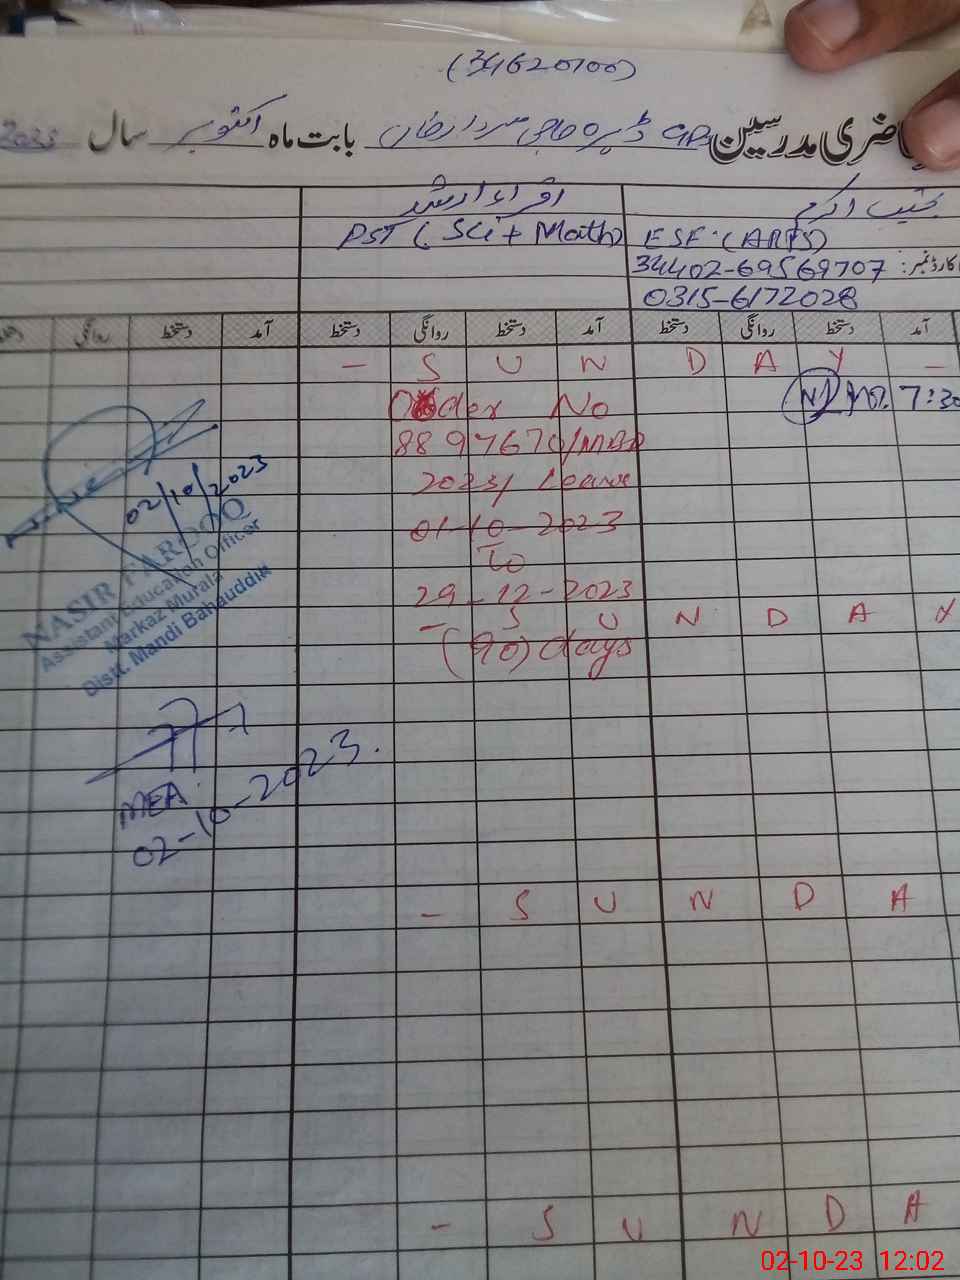 (34620100)
حاضری مدرسین GPS ڈیرہ حاجی سردار خان بابت ماہ اکتوبر سال 2023
اقراء ارشد
PST (Sci + Math) ESE (ARTS)
کارڈ نمبر: 34402-69569707
0315-6172028
آمد دستخط روانگی دستخط آمد دستخط روانگی دستخط آمد دستخط روانگی
- S U N D A Y -
Order No 7:30
8897670/
2023/ Leave
01-10-2023
To
29-12-2023
- S U N D A Y
(90) days
02/10/2023
NASIR FAROOQ
Assistant Education Officer
Markaz Murala
Distt. Mandi Bahauddin
MEA
02-10-2023.
- S U N D A
- S U N D A
02-10-23 12:02